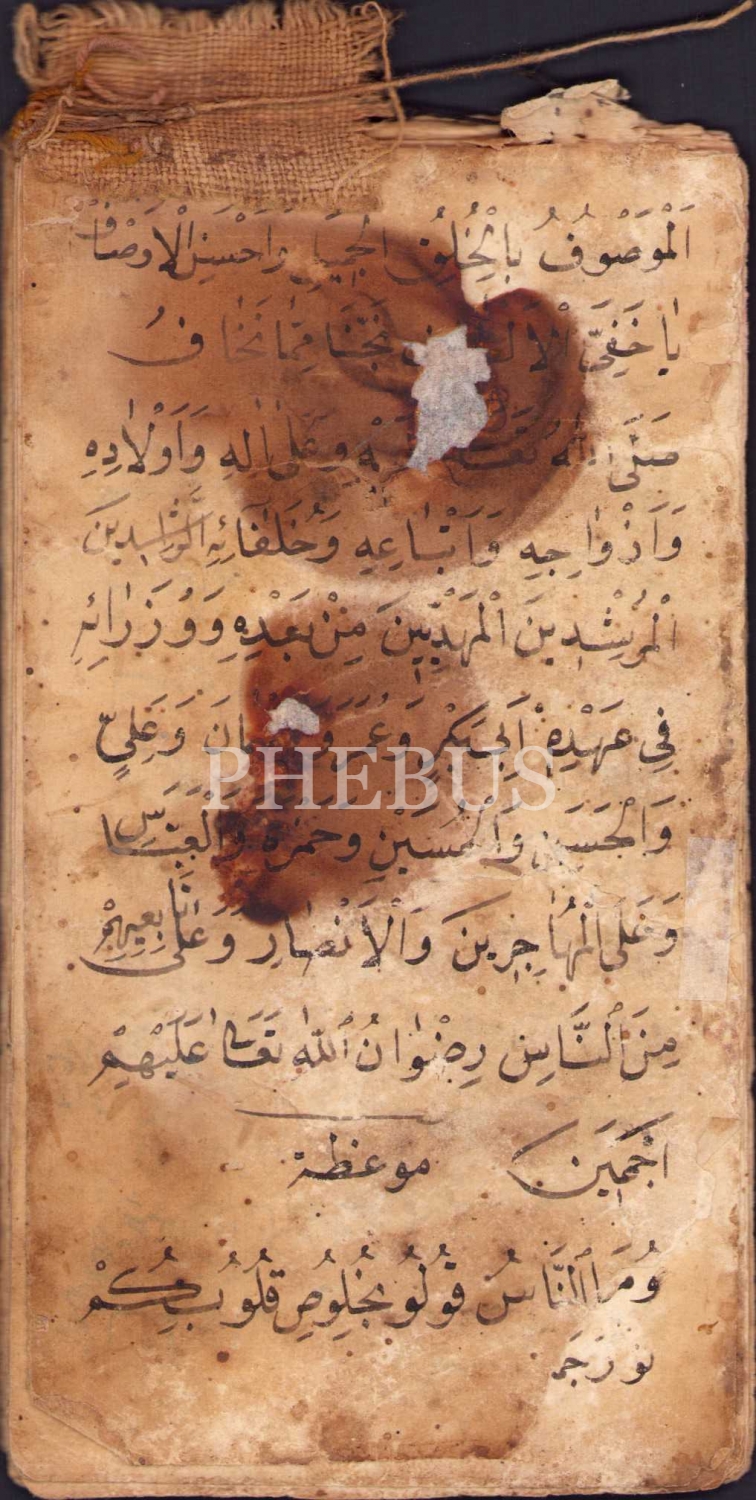 اَلْمَوْصُوفُ بِالْخُلُقِ الْجَمِيلِ وَاَحْسَنِ الْاَوْصَافْ
يَا خَفِيَّ نَجِّنَا مِمَّا نَخَافُ
صَلَّى اللهُ وَعَلٰى اٰلِهِ وَاَوْلَادِهِ
وَاَزْوَاجِهِ وَاَتْبَاعِهِ وَخُلَفَائِهِ الرَّاشِدِينَ
الْمُرْشِدِينَ الْمَهْدِيِّينَ مِنْ بَعْدِهِ وَوُزَرَائِهِ
فِي عَهْدِهِ اَبِي بَكْرٍ وَعُمَرَ وَعَلِيٍّ
وَالْحَسَنِ وَالْحُسَيْنِ وَحَمْزَةَ وَالْعَبَّاسِ
وَعَلَى الْمُهَاجِرِينَ وَالْاَنْصَارِ وَعَلٰى تَابِعِيهِمْ
مِنَ النَّاسِ رِضْوَانُ اللهِ تَعَالٰى عَلَيْهِمْ
اَجْمَعِينَ موعظة
النَّاسُ قُولُو بِخُلُوصِ قُلُوبِكُمْ
PHEBUS